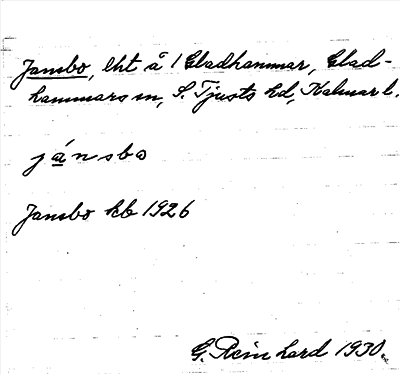 Jansbo, lht å 1 Gladhammar, Glad-
hammars sn, S. Tjusts hd, Kalmar l.
jánsbo
Jansbo kb 1926
G. Reinhard 1930.